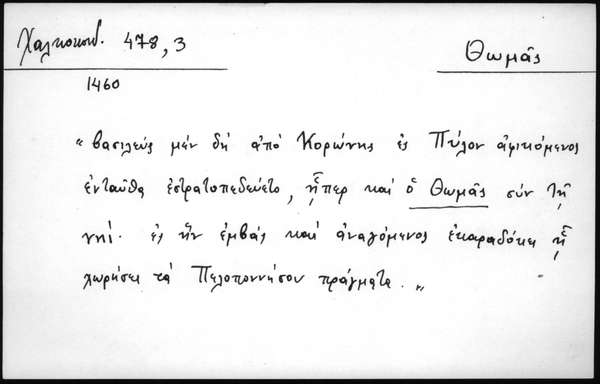 Χαλκοκονδ. 478,3
Θωμᾶς
1460
"βασιλεὺς μὲν δὴ ἀπὸ Κορώνης ἐς Πύλον ἀφικόμενος
ἐνταῦθα ἐστρατοπεδεύετο, ᾗπερ καὶ ὁ Θωμᾶς σὺν τῇ
νηί. ἐς ἣν ἐμβὰς καὶ ἀναγόμενος ἐκαραδόκει ᾗ
χωρήσει τὰ Πελοποννήσου πράγματα."